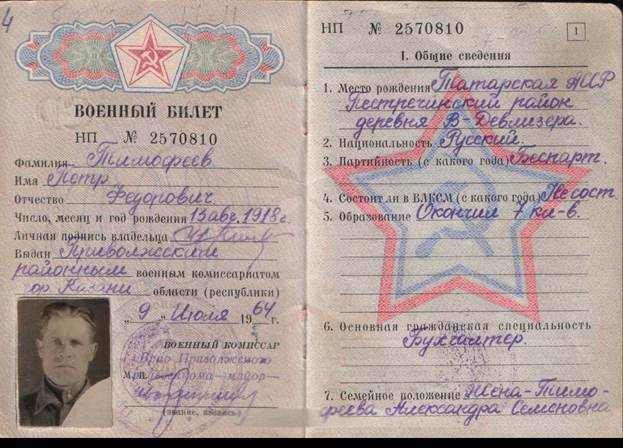 4
ВОЕННЫЙ БИЛЕТ
НП № 2570810
Фамилия Тимофеев
Имя Петр
Отчество Федорович.
Число, месяц и год рождения 15 авг. 1918 г.
Личная подпись владельца
Выдан Приволжским
районным военным комиссариатом
гор. Казани области (республики)
„9" Июля 1964 г.
ВОЕННЫЙ КОМИССАР
Врио Приволжского
М.П. майор
(звание, подпись)
НП № 2570810 1
I. Общие сведения
1. Место рождения Татарская АССР
Пестречинский район
деревня В-Девлизера.
2. Национальность Русский.
3. Партийность (с какого года) Беспарт.
4. Состоит ли в ВЛКСМ (с какого года) Не сост.
5. Образование Окончил 7 кл-в.
6. Основная гражданская специальность
Бухгалтер.
7. Семейное положение Жена-Тимо-
феева Александра Семеновна